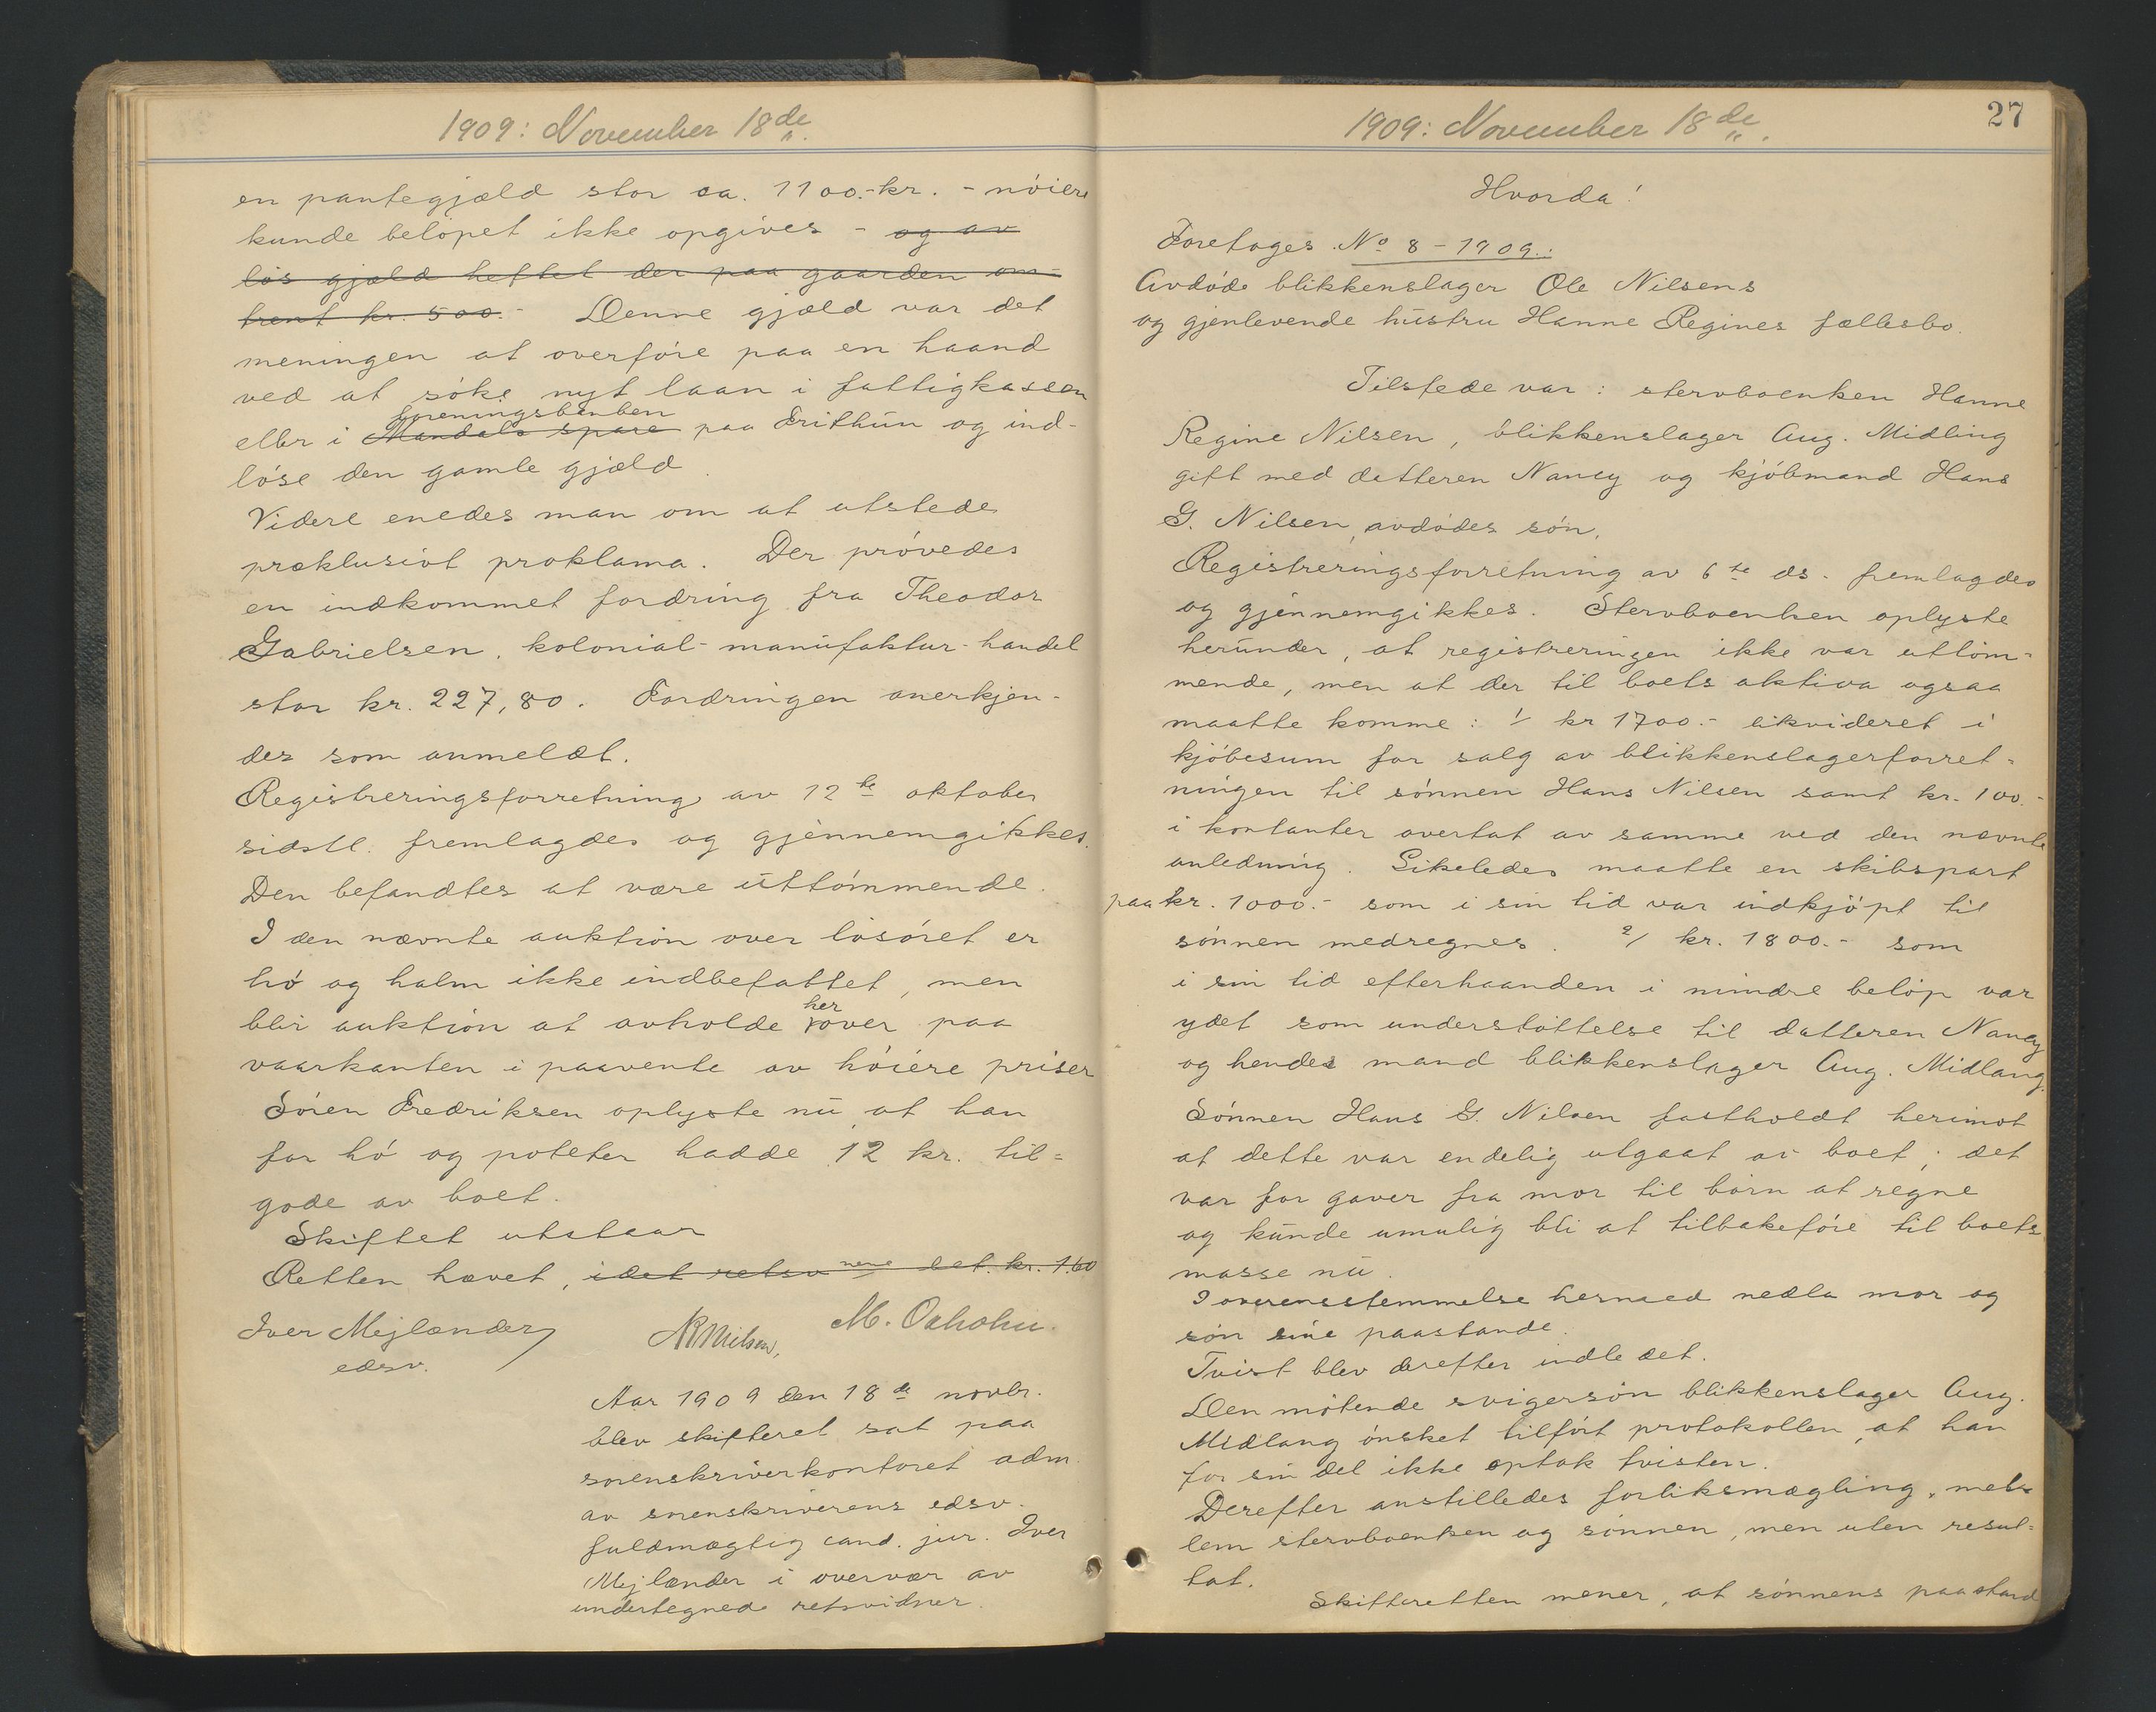 1909: November 18de
en pantegjæld stor ca. 1100.- kr. - nöiere
kunde belöpet ikke opgives - og av
lös gjæld heftet der paa gaarden om-
trent kr. 500.- Denne gjæld var det
meningen at overföre paa en haand
ved at söke nyt laan i fattigkassen
foreningsbanken
eller i Mandals spare paa Frithun og ind-
löse den gamle gjæld.
Videre enedes man om at utstede
præklusivt proklama. Der prövedes
en indkommet fordring fra Theodor
Gabrielsen, kolonial-manufaktur-handel
stor kr. 227,80. Fordringen anerkjen-
des som anmeldt.
Registreringsforretning av 12te oktober
sidstl. fremlagdes og gjennemgikkes.
Den befandtes at være uttömmende.
I den nævnte auktion over lösöret er
hö og halm ikke indbefattet, men
her
blir auktion at avholde over paa
vaarkanten i paavente av höiere priser
Sören Fredriksen oplyste nu, at han
for hö og poteter hadde 12 kr. til=
gode av boet.
Skiftet utstaar
Retten hævet, idet retsvnene det. kr. 1.60
Iver Mejlænder
edsv.
NRNilsen,
M. Oxholm.
Aar 1909 den 18de novbr.
blev skifteret sat paa
sorenskriverkontoret adm.
av sorenskriverens edsv.
fuldmægtig cand. jur. Iver
Mejlænder i overvær av
undertegnede retsvidner.
27
1909: November 18de.
Hvorda!
Foretages No 8 - 1909.:
Avdöde blikkenslager Ole Nilsens
og gjenlevende hustru Hanne Regines fællesbo.
Tilstede var: stervboenken Hanne
Regine Nilsen, blikkenslager Aug. Midling
gift med datteren Nancy og kjöbmand Hans
G. Nilsen, avdödes sön.
Registreringsforretning av 6te ds. fremlagdes
og gjennemgikkes. Stervboenken oplyste
herunder, at registreringen ikke var uttöm=
mende, men at der til boets aktiva ogsaa
maatte komme: 1/ kr 1700.- likvideret i
kjöbesum for salg av blikkenslagerforret=
ningen til sönnen Hans Nilsen samt kr. 100.-
i kontanter overtat av samme ved den nævnte
anledning. Likeledes maatte en skibspart
paa kr. 1000.- som i sin tid var indkjöpt til
sönnen medregnes. 2/ kr. 1800.- som
i sin tid efterhaanden i mindre belöp var
ydet som understöttelse til datteren Nancy
og hendes mand blikkenslager Aug. Midlang.
Sönnen Hans G. Nilsen fastholdt herimot
at dette var endelig utgaat av boet; det
var for gaver fra mor til börn at regne
og kunde umulig bli at tilbakeföre til boets
masse nu.
I overensstemmelse hermed nedla mor og
sön sine paastande.
Tvist blev derefter indledet.
Den mötende svigersön blikkenslager Aug.
Midlang önsket tilfört protokollen, at han
for sin del ikke optok tvisten.
Derefter anstilledes forliksmægling, mel-
lem stervboenken og sönnen, men uten resul=
tat.
Skifteretten mener, at sönnens paastand